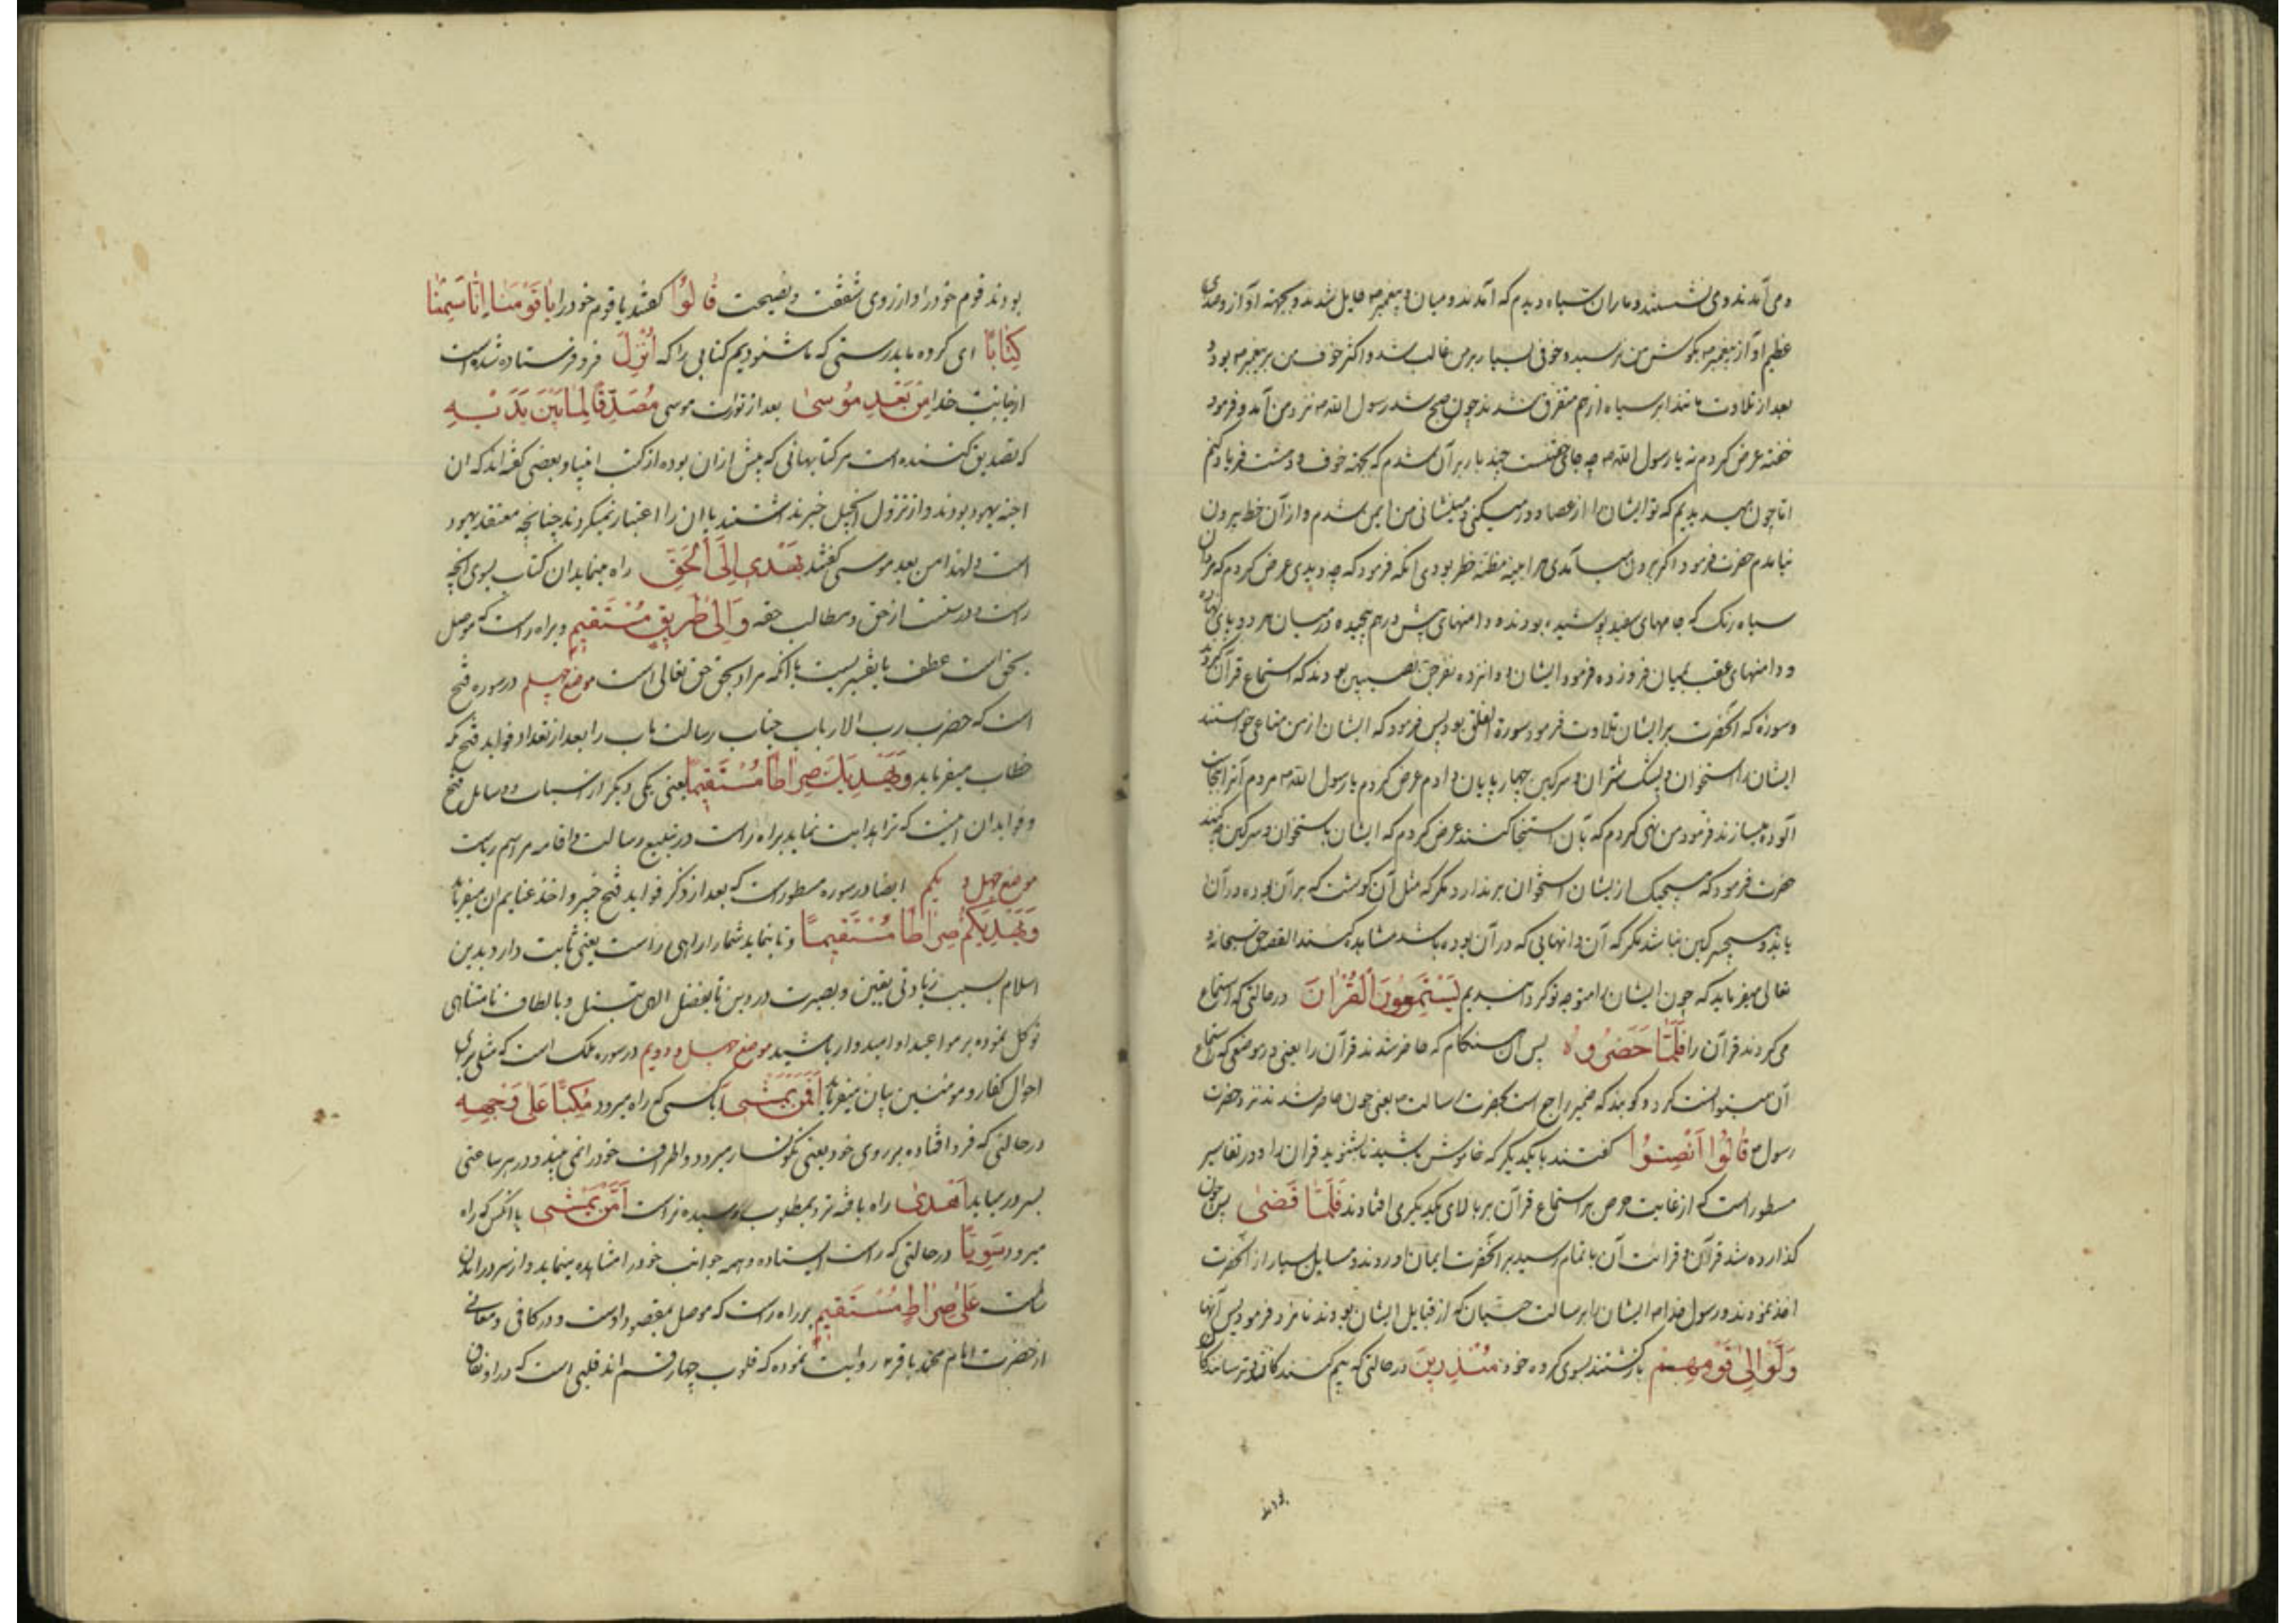 و می آمدند و می نشستند و ماران سیاه دیدم که آمدند و میان و پیغمبر ص حایل شدند و بجهته آواز و صدای
عظیم آواز پیغمبر ص بگوش من نرسید و خوفی بسیار بر من غالب شد و اکثر خوف من بر پیغمبر ص بود و
بعد از تلاوت مانند ابر سیاه از هم متفرق شدند چون صبح شد رسول الله ص نزد من آمد و فرمود
خفته عرض کردم نه یا رسول الله ص چه جای خفتنست چند بار بر آن شدم که بجهته خوف و دشت فریاد کنم
اما چون میدیدم که تو ایشان را از عصا دور میکنی و مینشانی من ایمن شدم و از آن خط بیرون
نیامدم حضرت فرمود اگر برون میآمدی هر آینه مظنه خطر بودی آنکه فرمود که چه دیدی عرض کردم که مردان
سیاه رنک که جامهای سفید پوشیده بودند و دامنهای پیش درهم پیچیده در میان هر دو پای
و دامنهای عقب بمیان فرو زده فرمود ایشان دوانزده نفر جن نصیبین بودند که استماع قرآن کردند
و سوره که آنحضرت بر ایشان تلاوت فرمود سورة العلق بود پس فرمود که ایشان از من متاعی خواستند
ایشان را استخوان و پشک شتران و سرکین چهارپایان دادم عرض کردم یا رسول الله ص مردم آنرا بنجاست
آلوده میسازند فرمود من نهی کردم که بآن استنجا کنند عرض کردم که ایشان باستخوان و سرکین چه کنند
حضرت فرمود که هیچیک از ایشان استخوان برندارد مکر که مثل آن کوشت که بر آن بوده در آن
یابد و هیچ سرکین نباشد مکر که آن دانهایی که در آن بوده باشد مشاهده کنند القصه حق سبحانه و
تعالی میفرماید که چون ایشان را متوجه تو کردانیدیم یَسْتَمِعُونَ الْقُرْآنَ در حالتی که استماع
می کردند قرآن را فَلَمَّا حَضَرُوهُ پس آن هنکام که حاضر شدند قرآن را یعنی در موضعی که استماع
آن میتوانست کرد و کویند که ضمیر راجع است بحضرت رسالت ص یعنی چون حاضر شدند نزد حضرت
رسول ص قَالُوا أَنْصِتُوا گفتند با یکدیکر که خاموش باشید تا بشنوید قرآن را و در تفاسیر
مسطور است که از غایت حرص بر استماع قرآن بر بالای یکدیکر می افتادند فَلَمَّا قَضَى پس چون
گذارده شد قرآن و قرائت آن باتمام رسید بر آنحضرت ایمان آوردند و مسایل بسیار از آنحضرت
اخذ نمودند و رسول خدا ص ایشان را برسالت جنیان که از قبایل ایشان بودند نامزد فرمود پس آنها
وَلَّوْا إِلَى قَوْمِهِمْ بازکشتند بسوی کروه خود مُنْذِرِينَ در حالتی که بیم کنندکان و ترسانندکان
بودند
بودند قوم خود را و از روی شفقت و نصیحت قَالُوا گفتند با قوم خود را يَا قَوْمَنَا إِنَّا سَمِعْنَا
كِتَابًا ای کروه ما بدرستی که ما شنودیم کتابی را که أُنْزِلَ فرو فرستاده شده است
از جانب خدا مِنْ بَعْدِ مُوسَى بعد از تورات موسی مُصَدِّقًا لِمَا بَيْنَ يَدَيْهِ
که تصدیق کننده است مر کتابهائی که پیش از آن بوده از کتب انبیا و بعضی کفته اند که آن
اجنه یهود بودند و از نزول انجیل خبر نداشتند یا آن را اعتبار نمیکردند چنانچه معتقد یهود
است و لهذا من بعد موسی کفتند يَهْدِي إِلَى الْحَقِّ راه مینماید آن کتاب بسوی آنچه
راست و درستست از حق و مطالب حقه وَإِلَى طَرِيقٍ مُسْتَقِيمٍ و براه راست که موصل
بحق است عطف یا تفسیریست یا آنکه مراد بحق حق تعالی است موضع چهلم در سوره فتح
است که حضرت رب الارباب جناب رسالت مآب را بعد از تعداد فواید فتح مکه
خطاب میفرماید وَيَهْدِيَكَ صِرَاطًا مُسْتَقِيمًا یعنی یکی دیکر از اسباب و وسایل فتح
و فواید آن اینست که ترا هدایت نماید براه راست در تبلیغ رسالت و اقامه مراسم ریاست
موضع چهل و یکم ایضا در سوره مسطور است که بعد از ذکر فواید فتح خیبر و اخذ غنایم آن میفرماید
وَيَهْدِيَكُمْ صِرَاطًا مُسْتَقِيمًا و تا بنماید شما را راهی راست یعنی ثابت دارد بدین
اسلام بسبب زیادتی یقین و بصیرت در دین تا بفضل الهی و بالطاف نامتناهی
توکل نموده بر مواعید او امیدوار باشید موضع چهل و دویم در سوره ملک است که مثلی برای
احوال کفار و مومنین بیان میفرماید أَفَمَنْ يَمْشِي آیا کسی که راه میرود مُكِبًّا عَلَى وَجْهِهِ
در حالتی که فرو افتاده بر روی خود یعنی نکونسار میرود و اطراف خود را نمی بیند و در هر ساعتی
بسر در میاید أَهْدَى راه یافته تر و بمطلوب رسیده تر است أَمَّنْ يَمْشِي یا آنکس که راه
میرود سَوِيًّا در حالتی که راست ایستاده و همه جوانب خود را مشاهده مینماید و از سر در آمدن
سالمست عَلَى صِرَاطٍ مُسْتَقِيمٍ بر راه راست که موصل بمقصود اوست و در کافی و معانی
از حضرت امام محمد باقر ع روایت نموده که قلوب چهار قسم اند قلبی است که در او نفاق